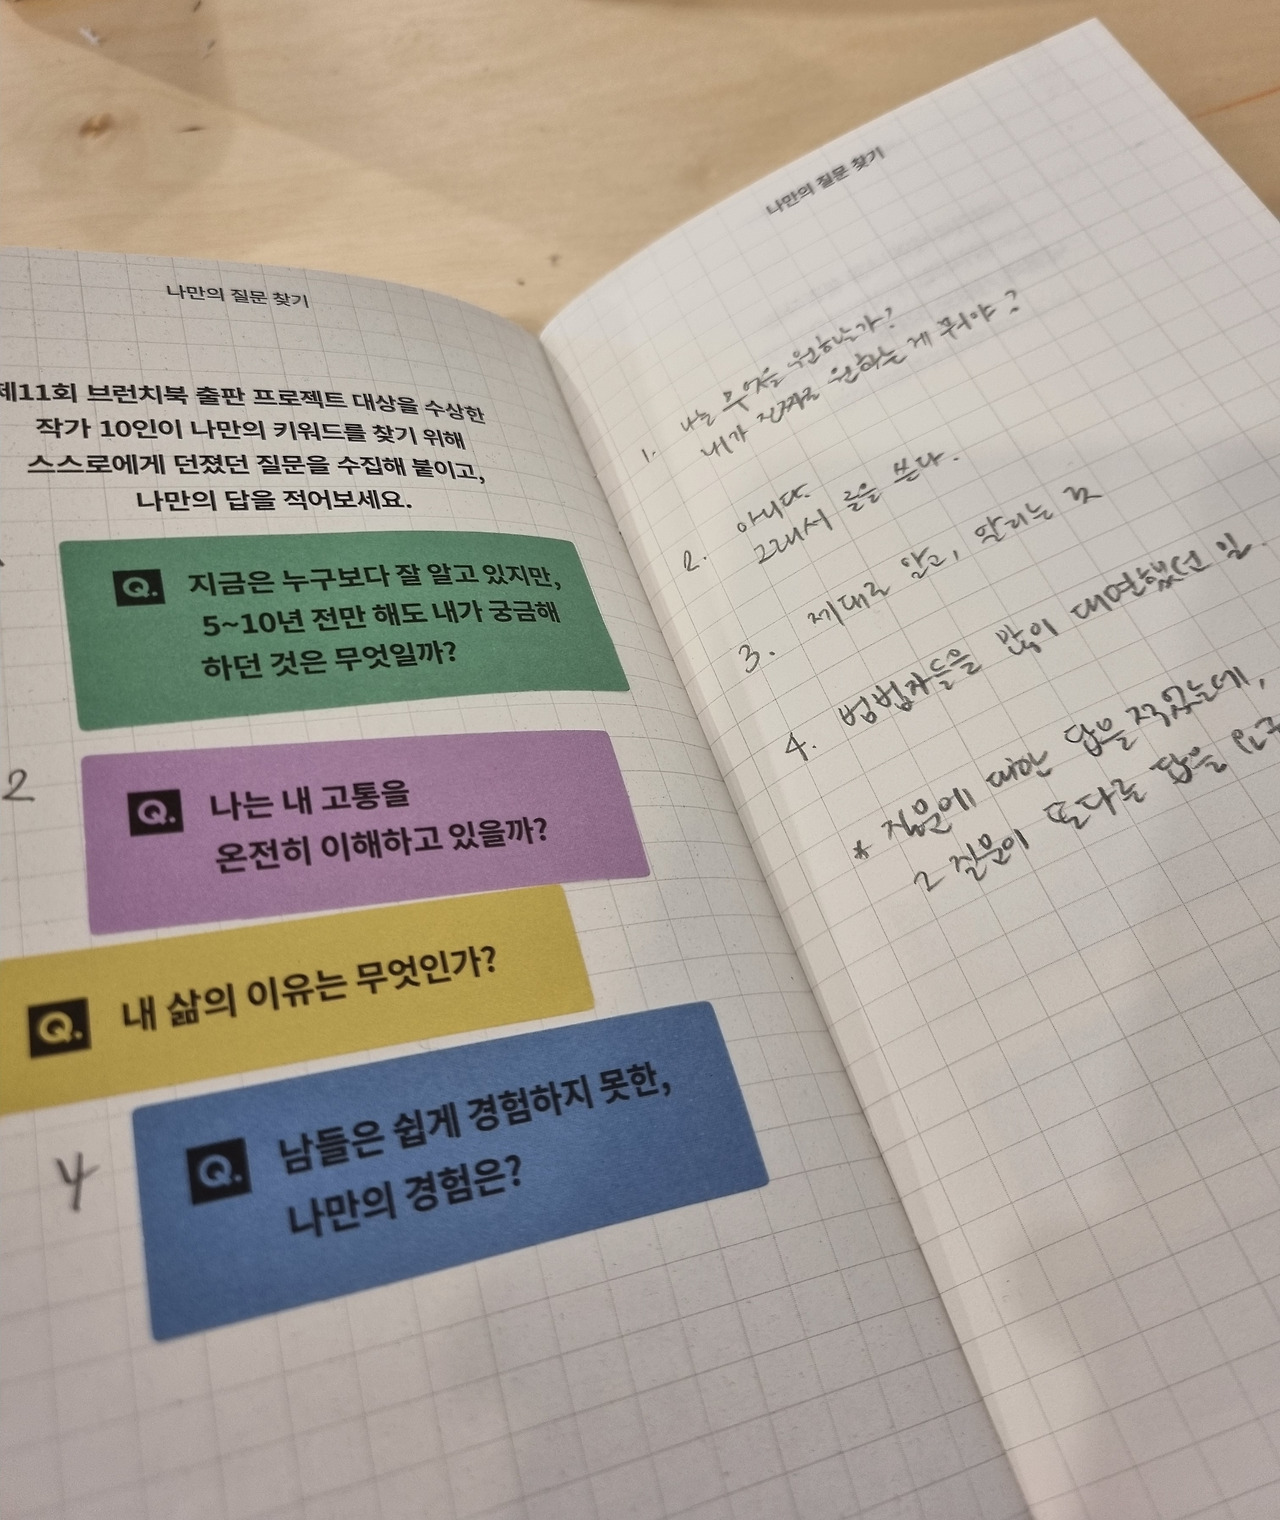 나만의 질문 찾기
제11회 브런치북 출판 프로젝트 대상을 수상한
작가 10인이 나만의 키워드를 찾기 위해
스스로에게 던졌던 질문을 수집해 붙이고,
나만의 답을 적어보세요.
Q. 지금은 누구보다 잘 알고 있지만,
5~10년 전만 해도 내가 궁금해
하던 것은 무엇일까?
2
Q. 나는 내 고통을
온전히 이해하고 있을까?
Q. 내 삶의 이유는 무엇인가?
4
Q. 남들은 쉽게 경험하지 못한,
나만의 경험은?
나만의 질문 찾기
1. 나는 무엇을 원하는가?
내가 진짜로 원하는 게 뭐야?
2. 아니다.
그래서 글을 쓴다.
3. 제대로 알고, 알리는 것
4. 범법자들을 많이 대면했던 일.
* 질문에 대한 답을 적었는데,
그 질문이 또다른 답을